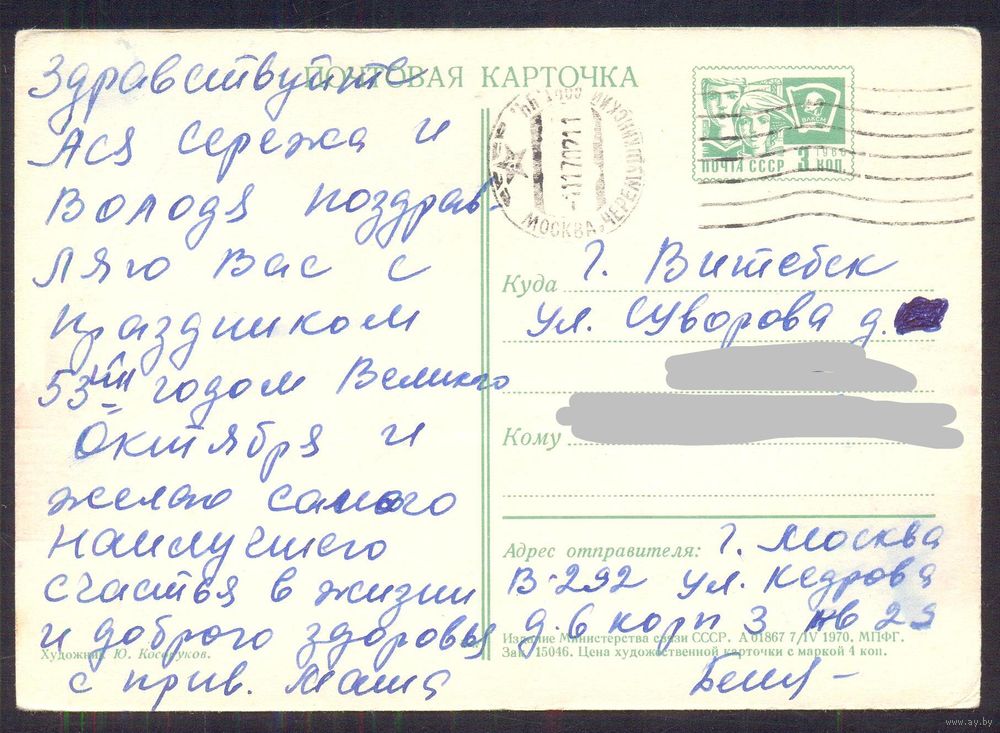 ПОЧТОВАЯ КАРТОЧКА
Здравствуйте
Ася Сережа и
Володя поздрав-
ляю Вас с
праздником
53ий годом Великого
Октября и
желаю самого
наилучшего
счастья в жизни
и доброго здоровья
с прив. Маша
Художник Ю. Косоруков.
МОСКВА, ЧЕРЕМУШКИНСКИЙ
ВЛКСМ
1966
ПОЧТА СССР 3 КОП.
Куда г. Витебск
ул. Суворова д.
Кому
Адрес отправителя: г. Москва
В-292 ул. Кедрова
д. 6 корп 3 кв
Издание Министерства связи СССР. А 01867 7/IV 1970. МПФГ.
Зак. 15046. Цена художественной карточки с маркой 4 коп.
www.ay.by